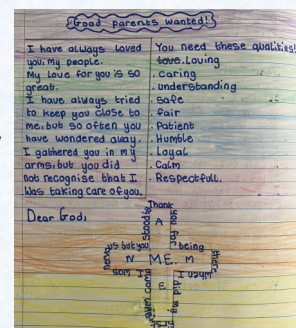 Good parents wanted!
I have always loved
you, My people.
My love for you is so
great.
I have always tried
to keep you close to
me, but so often you
have wondered away.
I gathered you in my
arms, but you did
not recognise that I
was taking care of you.
You need these qualities!
love. Loving
. caring
. understanding
. safe
. fair
. Patient
. Humble
. Loyal
. Calm
. Respectfull.
Dear God,
Thank
you for
being
there
when I
did my
A
ME.
N
M
E